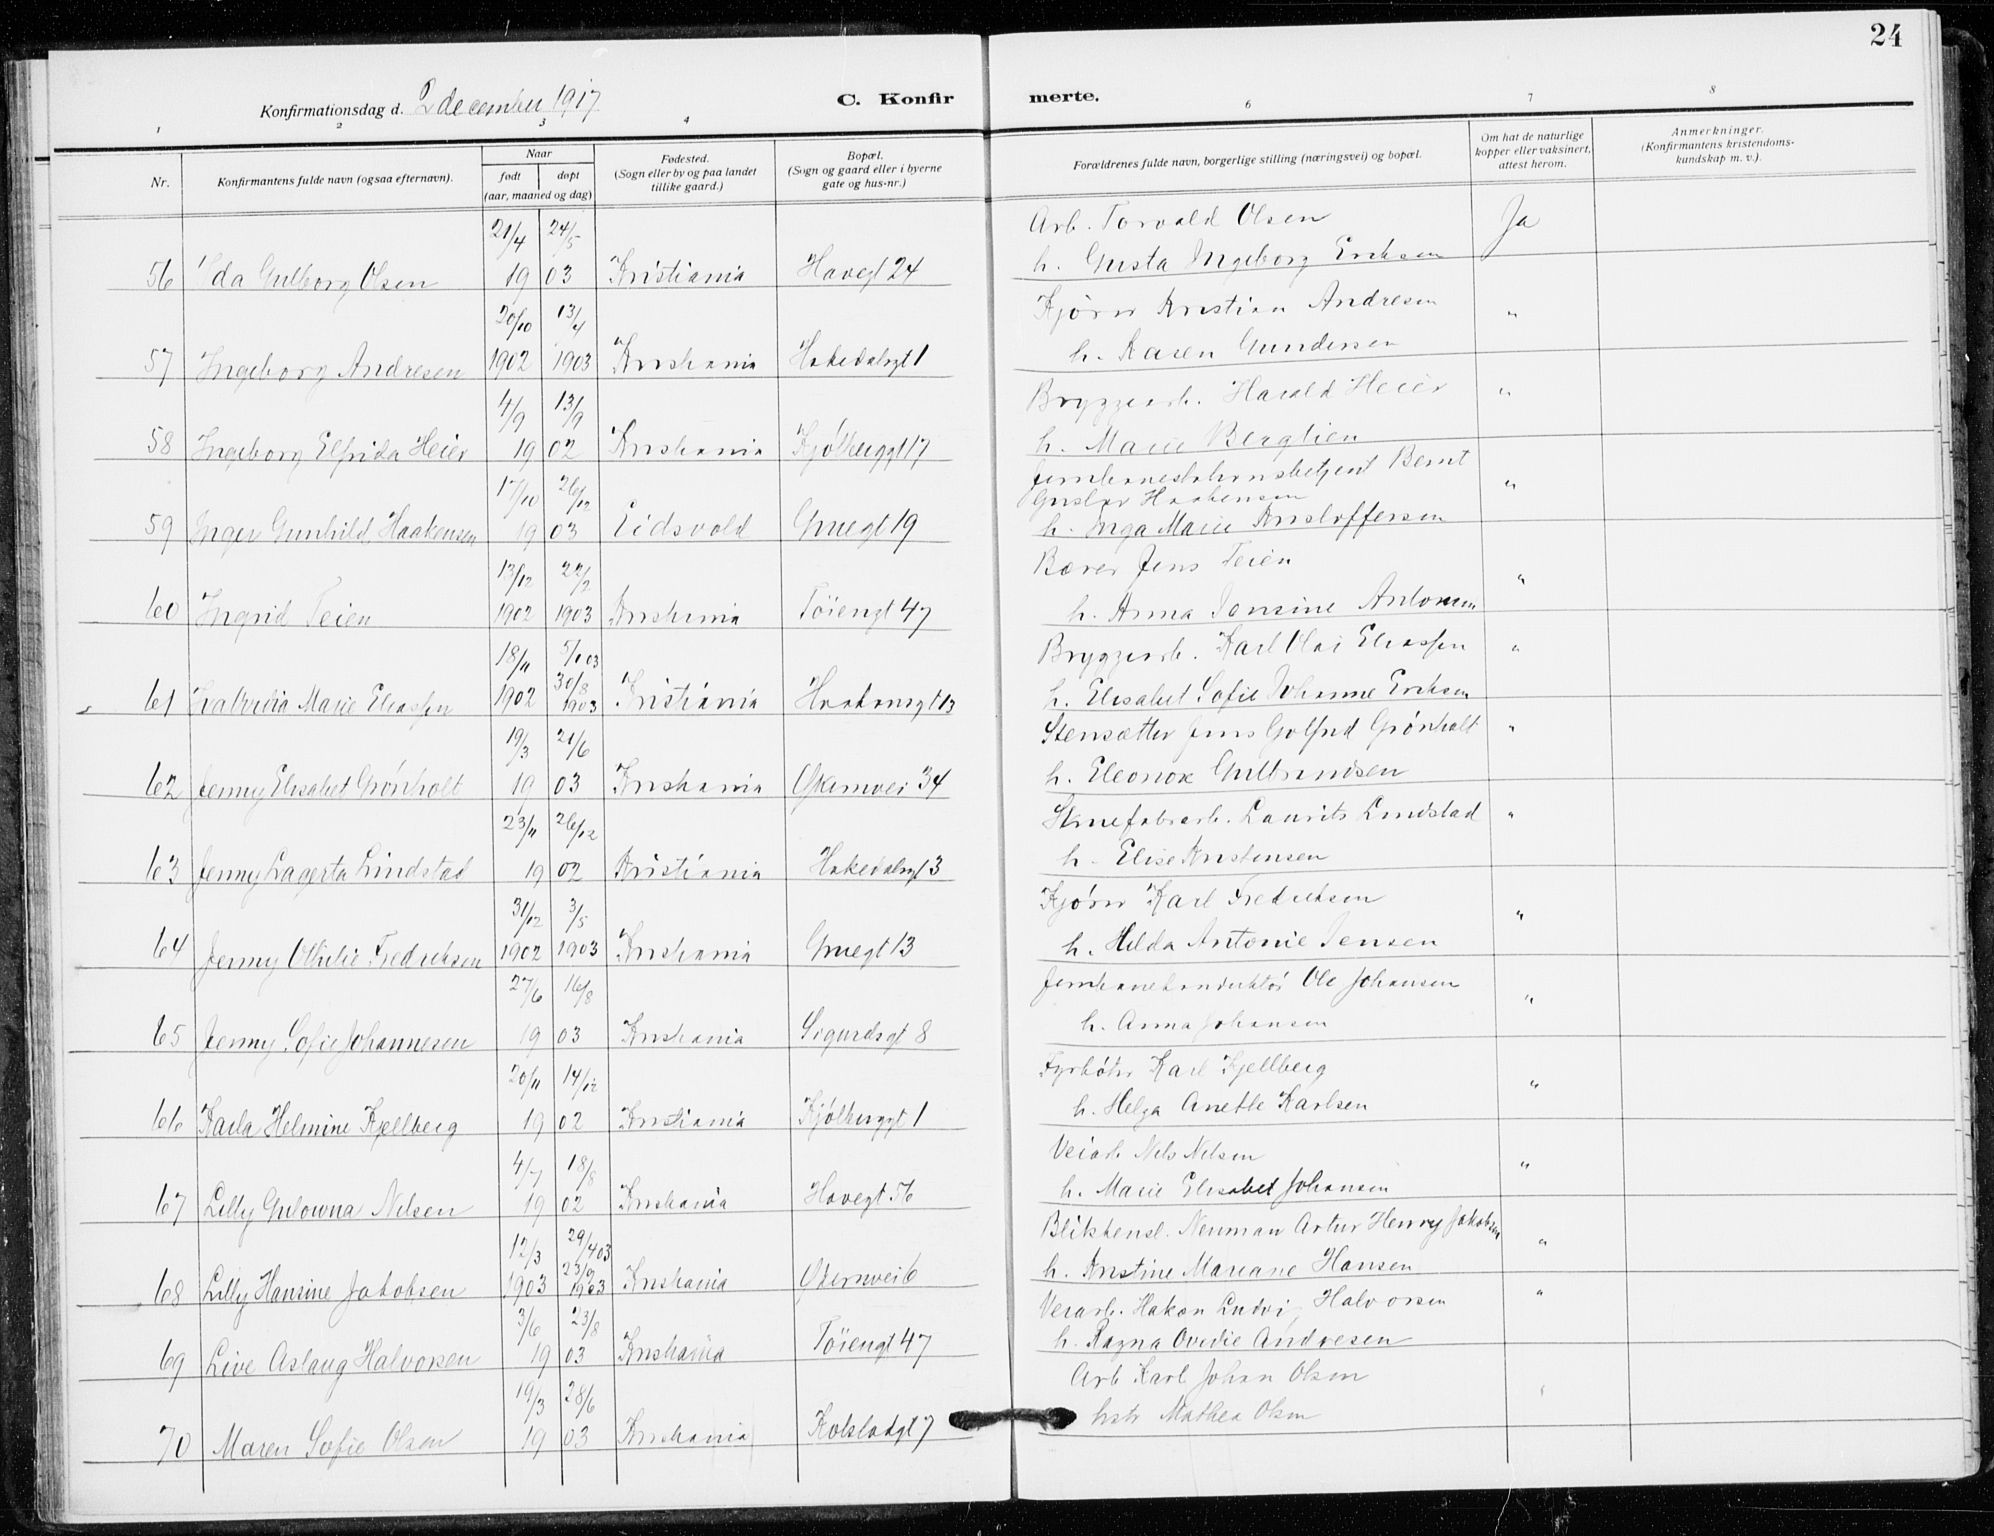 24
Konfirmationsdag d. 2 december 1917
C. Konfir merte.
1 2 3 4 6 7 8
Nr.
Konfirmantens fulde navn (ogsaa efternavn).
Naar
født døpt
(aar, maaned og dag)
Fødested.
(Sogn eller by og paa landet
tillike gaard.)
Bopæl.
(Sogn og gaard eller i byerne
gate og hus-nr.)
Forældrenes fulde navn, borgerlige stilling (næringsvei) og bopæl.
Om hat de naturlige
kopper eller vaksinert,
attest herom.
Anmerkninger.
(Konfirmantens kristendoms-
kundskap m. v.).
21/4 24/5 Arb. Torvald Olsen Ja
56 Ida Gulborg Olsen 19 03 Kristiania Havegt 24 h. Gusta Ingeborg Eriksen
20/10 13/4 Kjører Kristian Andresen "
57 Ingeborg Andresen 1902 1903 Kristiania Hakedalsgt 1 h. Karen Gundersen
4/9 13/9 Bryggeriarb. Harald Heier "
58 Ingeborg Elfrida Heier 19 02 Kristiania Kjølberggt 17 h. Marie Berglien
17/10 26/12 Jernbanestationsbetjent Bernt
Gustav Haakensen "
59 Inger Gunhild Haakensen 19 03 Eidsvold Gruegt 19 h. Inga Marie Kristoffersen
13/12 22/2 Bærer Jens Teien "
60 Ingrid Teien 1902 1903 Kristiania Töiengt 47 h. Anna Jonsine Antonsen
18/11 5/1 03 Bryggeriarb. Karl Olai Eliassen "
30/8
61 Marie Eliassen 1902 1903 Kristiania Haakonsgt 13 h. Elisabet Sofie Johanne Eriksen
19/3 21/6 Stensætter Jens Golfred Grönholt "
62 Jenny Elisabet Grönholt 19 03 Kristiania Økernvei 34 h. Eleonora Gulbrandsen
23/11 26/12 Skruefabrarb. Laurits Lindstad "
63 Jenny Lagerta Lindstad 19 02 Kristiania Hakedalsgt 3 h. Elise Kristensen
31/12 3/5 Kjører Karl Fredriksen "
64 Jenny Othilie Fredriksen 1902 1903 Kristiania Gruegt 13 h. Hilda Antonie Jensen
27/6 16/8 Jernbanekonduktör Ole Johansen "
65 Jenny Sofie Johannesen 19 03 Kristiania Sigurdsgt 8 h. Anna Johansen
20/11 14/12 Fyrböter Karl Kjellberg "
66 Karla Helmine Kjellberg 19 02 Kristiania Kjølberggt 1 h. Helga Anette Karlsen
4/7 18/8 Veiarb Nils Nilsen "
67 Lilly Gulowna Nilsen 19 02 Kristiania Havegt 56 h. Marie Elisabet Johansen
12/3 29/4 03 Blikkensl. Neuman Artur Henry Jakobsen "
23/9
68 Lilly Hansine Jakobsen 1903 1903 Kristiania Økernvei 6 h. Kristine Mariane Hansen
3/6 23/8 Veiarb. Hakon Ludvi Halvorsen "
69 Live Aslaug Halvorsen 19 03 Kristiania Töiengt 47 h. Ragna Ovidie Andresen
19/3 28/6 Arb Karl Johan Olsen "
70 Maren Sofie Olsen 19 03 Kristiania Kolstadgt 7 hstr Mathea Olsen